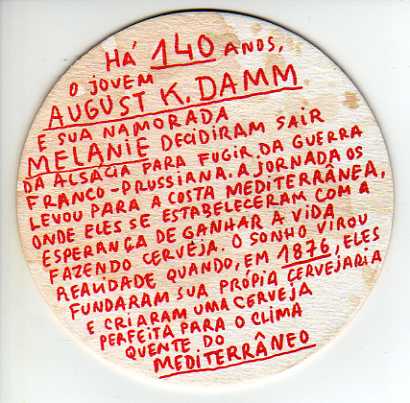 HÁ 140 ANOS,
O JOVEM
AUGUST K. DAMM
E SUA NAMORADA
MELANIE DECIDIRAM SAIR
DA ALSACIA PARA FUGIR DA GUERRA
FRANCO-PRUSSIANA. A JORNADA OS
LEVOU PARA A COSTA MEDITERRÂNEA,
ONDE ELES SE ESTABELECERAM COM A
ESPERANÇA DE GANHAR A VIDA
FAZENDO CERVEJA. O SONHO VIROU
REALIDADE QUANDO, EM 1876, ELES
FUNDARAM SUA PRÓPIA CERVEJARIA
E CRIARAM UMA CERVEJA
PERFEITA PARA O CLIMA
QUENTE DO
MEDITERRÂNEO